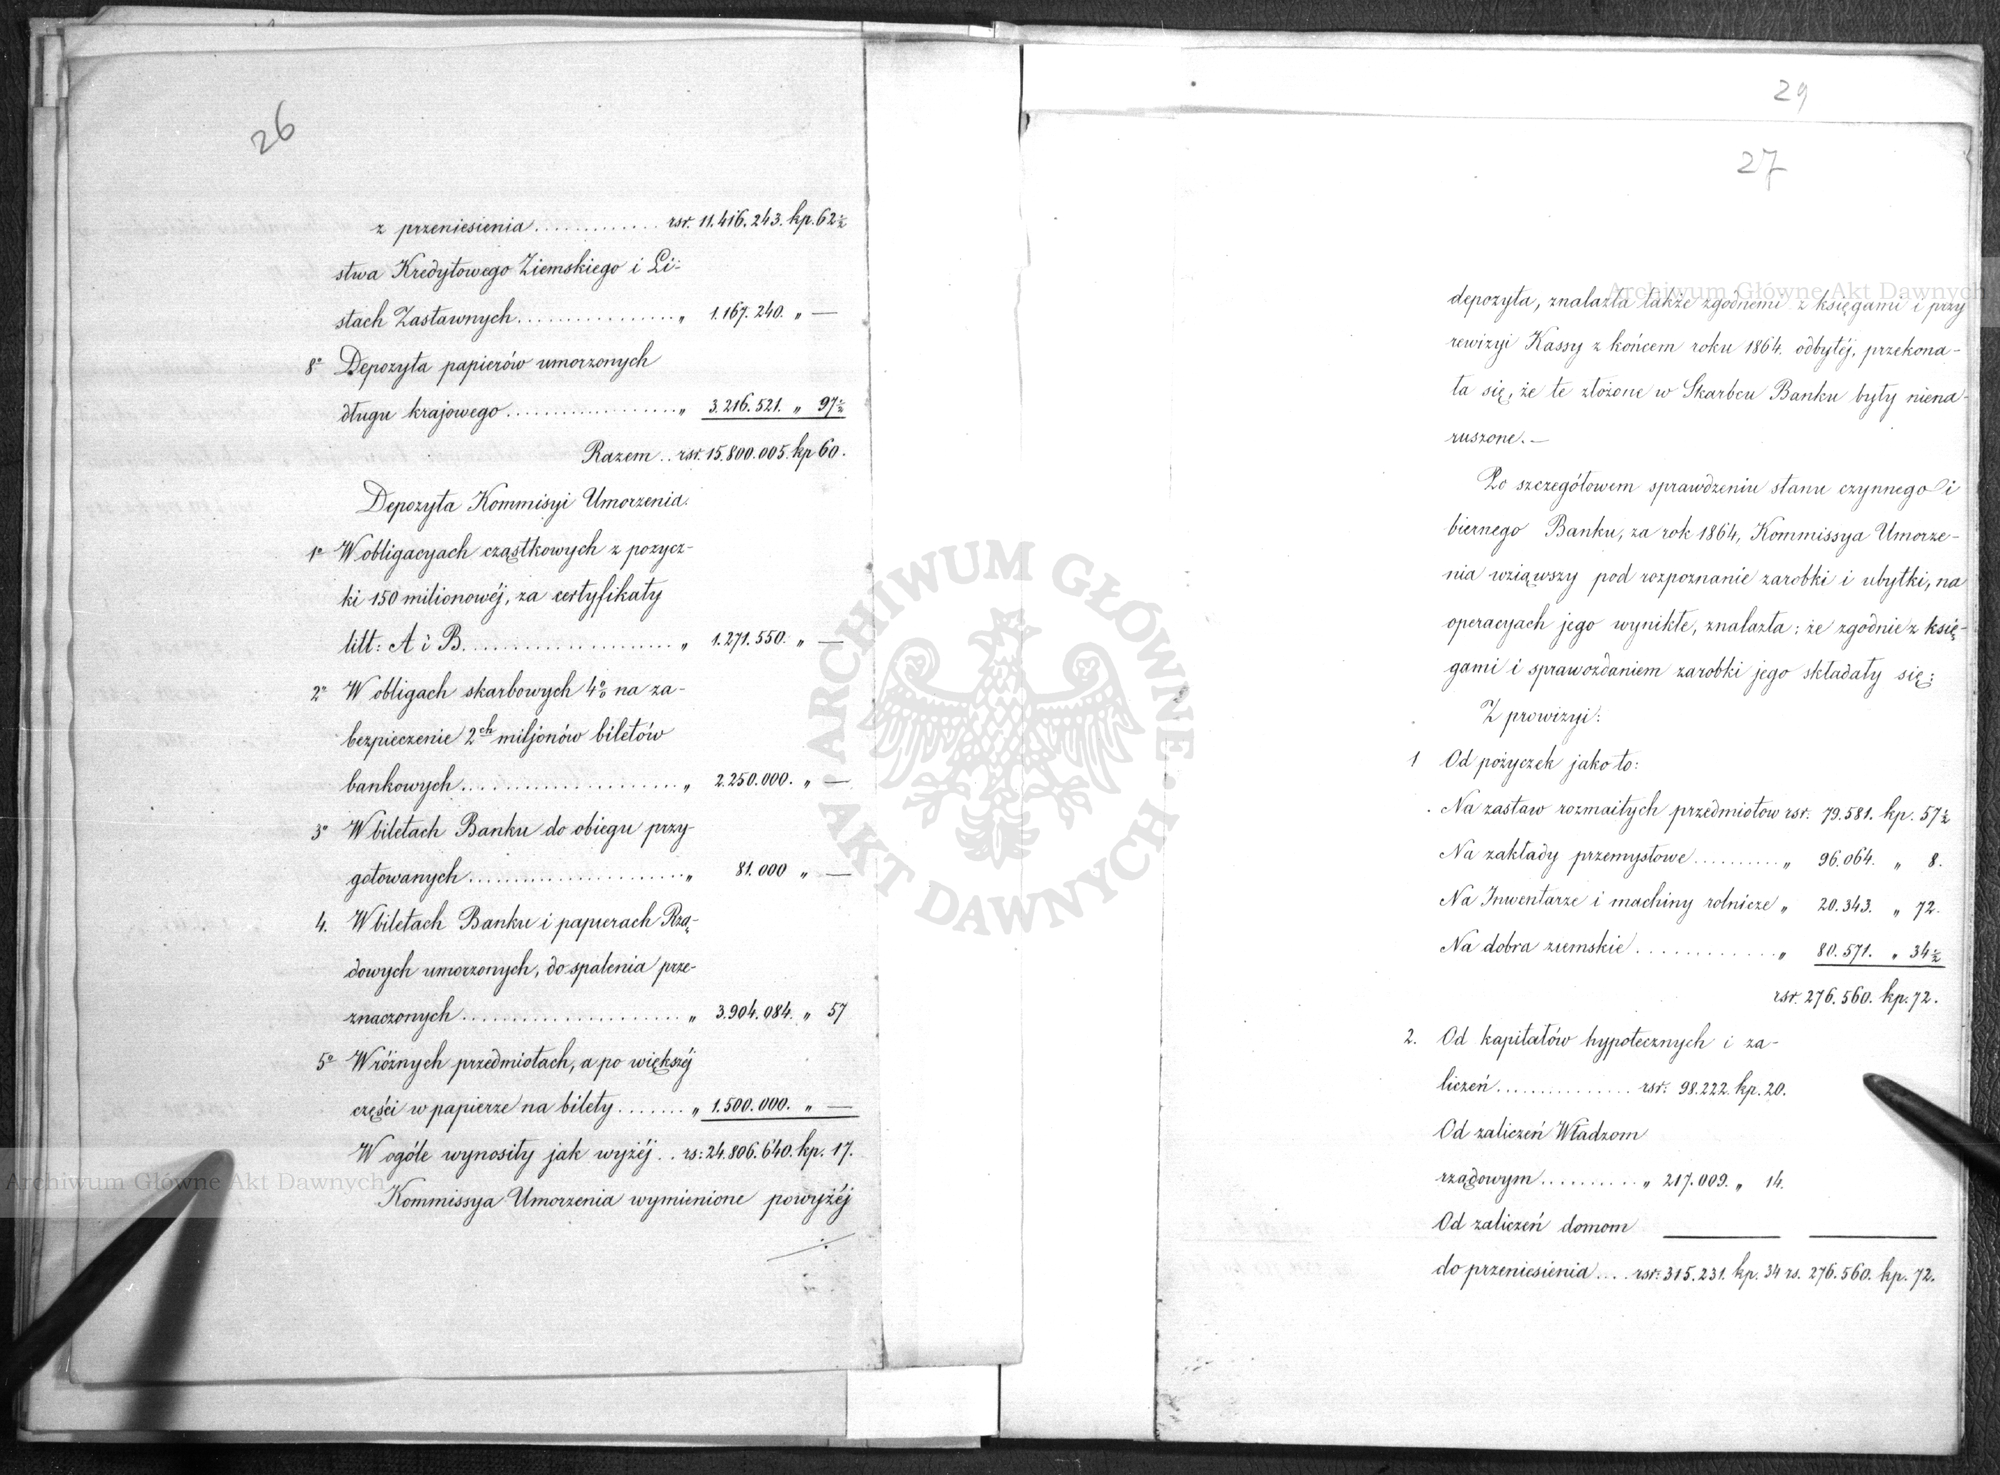 26
z przeniesienia ............. rsr. 11.416.243. kp. 62½
stwa Kredytowego Ziemskiego i Li-
stach Zastawnych ................. „ 1.167.240. „ —
8o Depozyta papierów umorzonych
długu krajowego .................. „ 3.216.521. „ 97½
Razem .. rsr. 15.800.005. kp 60.
Depozyta Kommisyi Umorzenia.
1o W obligacyach cząstkowych z pożycz-
ki 150 milionowéj, za certyfikaty
litt: A i B. ...................... „ 1.271.550. „ —
2o W obligach skarbowych 4% na za-
bezpieczenie 2ch miljonów biletów
bankowych ....................... „ 2.250.000. „ —
3o W biletach Banku do obiegu przy-
gotowanych ....................... „ 81.000 „ —
4. W biletach Banku i papierach Rzą-
dowych umorzonych, do spalenia prze-
znaczonych ....................... „ 3.904.084. „ 57
5o W różnych przedmiotach, a po większéj
części w papierze na bilety ....... „ 1.500.000. „ —
W ogóle wynosiły jak wyżéj .. rs: 24.806.640. kp. 17.
Kommissya Umorzenia wymienione powyżéj
29
27
depozyta, znalazła także zgodnemi z księgami i przy
rewizyi Kassy z końcem roku 1864. odbytéj, przekona-
ła się, że te złożone w Skarbcu Banku były niena-
ruszone. —
Po szczegółowem sprawdzeniu stanu czynnego i
biernego Banku, za rok 1864, Kommissya Umorze-
nia wziąwszy pod rozpoznanie zarobki i ubytki, na
operacyach jego wynikłe, znalazła; że zgodnie z księ-
gami i sprawozdaniem zarobki jego składały się:
Z prowizyi:
1 Od pożyczek jako to:
Na zastaw rozmaitych przedmiotow rsr. 79.581. kp. 57½
Na zakłady przemysłowe .......... „ 96.064. „ 8.
Na Inwentarze i machiny rolnicze „ 20.343. „ 72.
Na dobra ziemskie .............. „ 80.571. „ 34½
rsr. 276.560. kp. 72.
2. Od kapitałów hypotecznych i za-
liczeń .............. rsr: 98.222. kp. 20.
Od zaliczeń Władzom
rządowym .......... „ 217.009. „ 14.
Od zaliczeń domom
do przeniesienia .... rsr: 315.231. kp. 34 rs. 276.560. kp. 72.
Archiwum Główne Akt Dawnych
Archiwum Główne Akt Dawnych
ARCHIWUM GŁÓWNE · AKT DAWNYCH ·